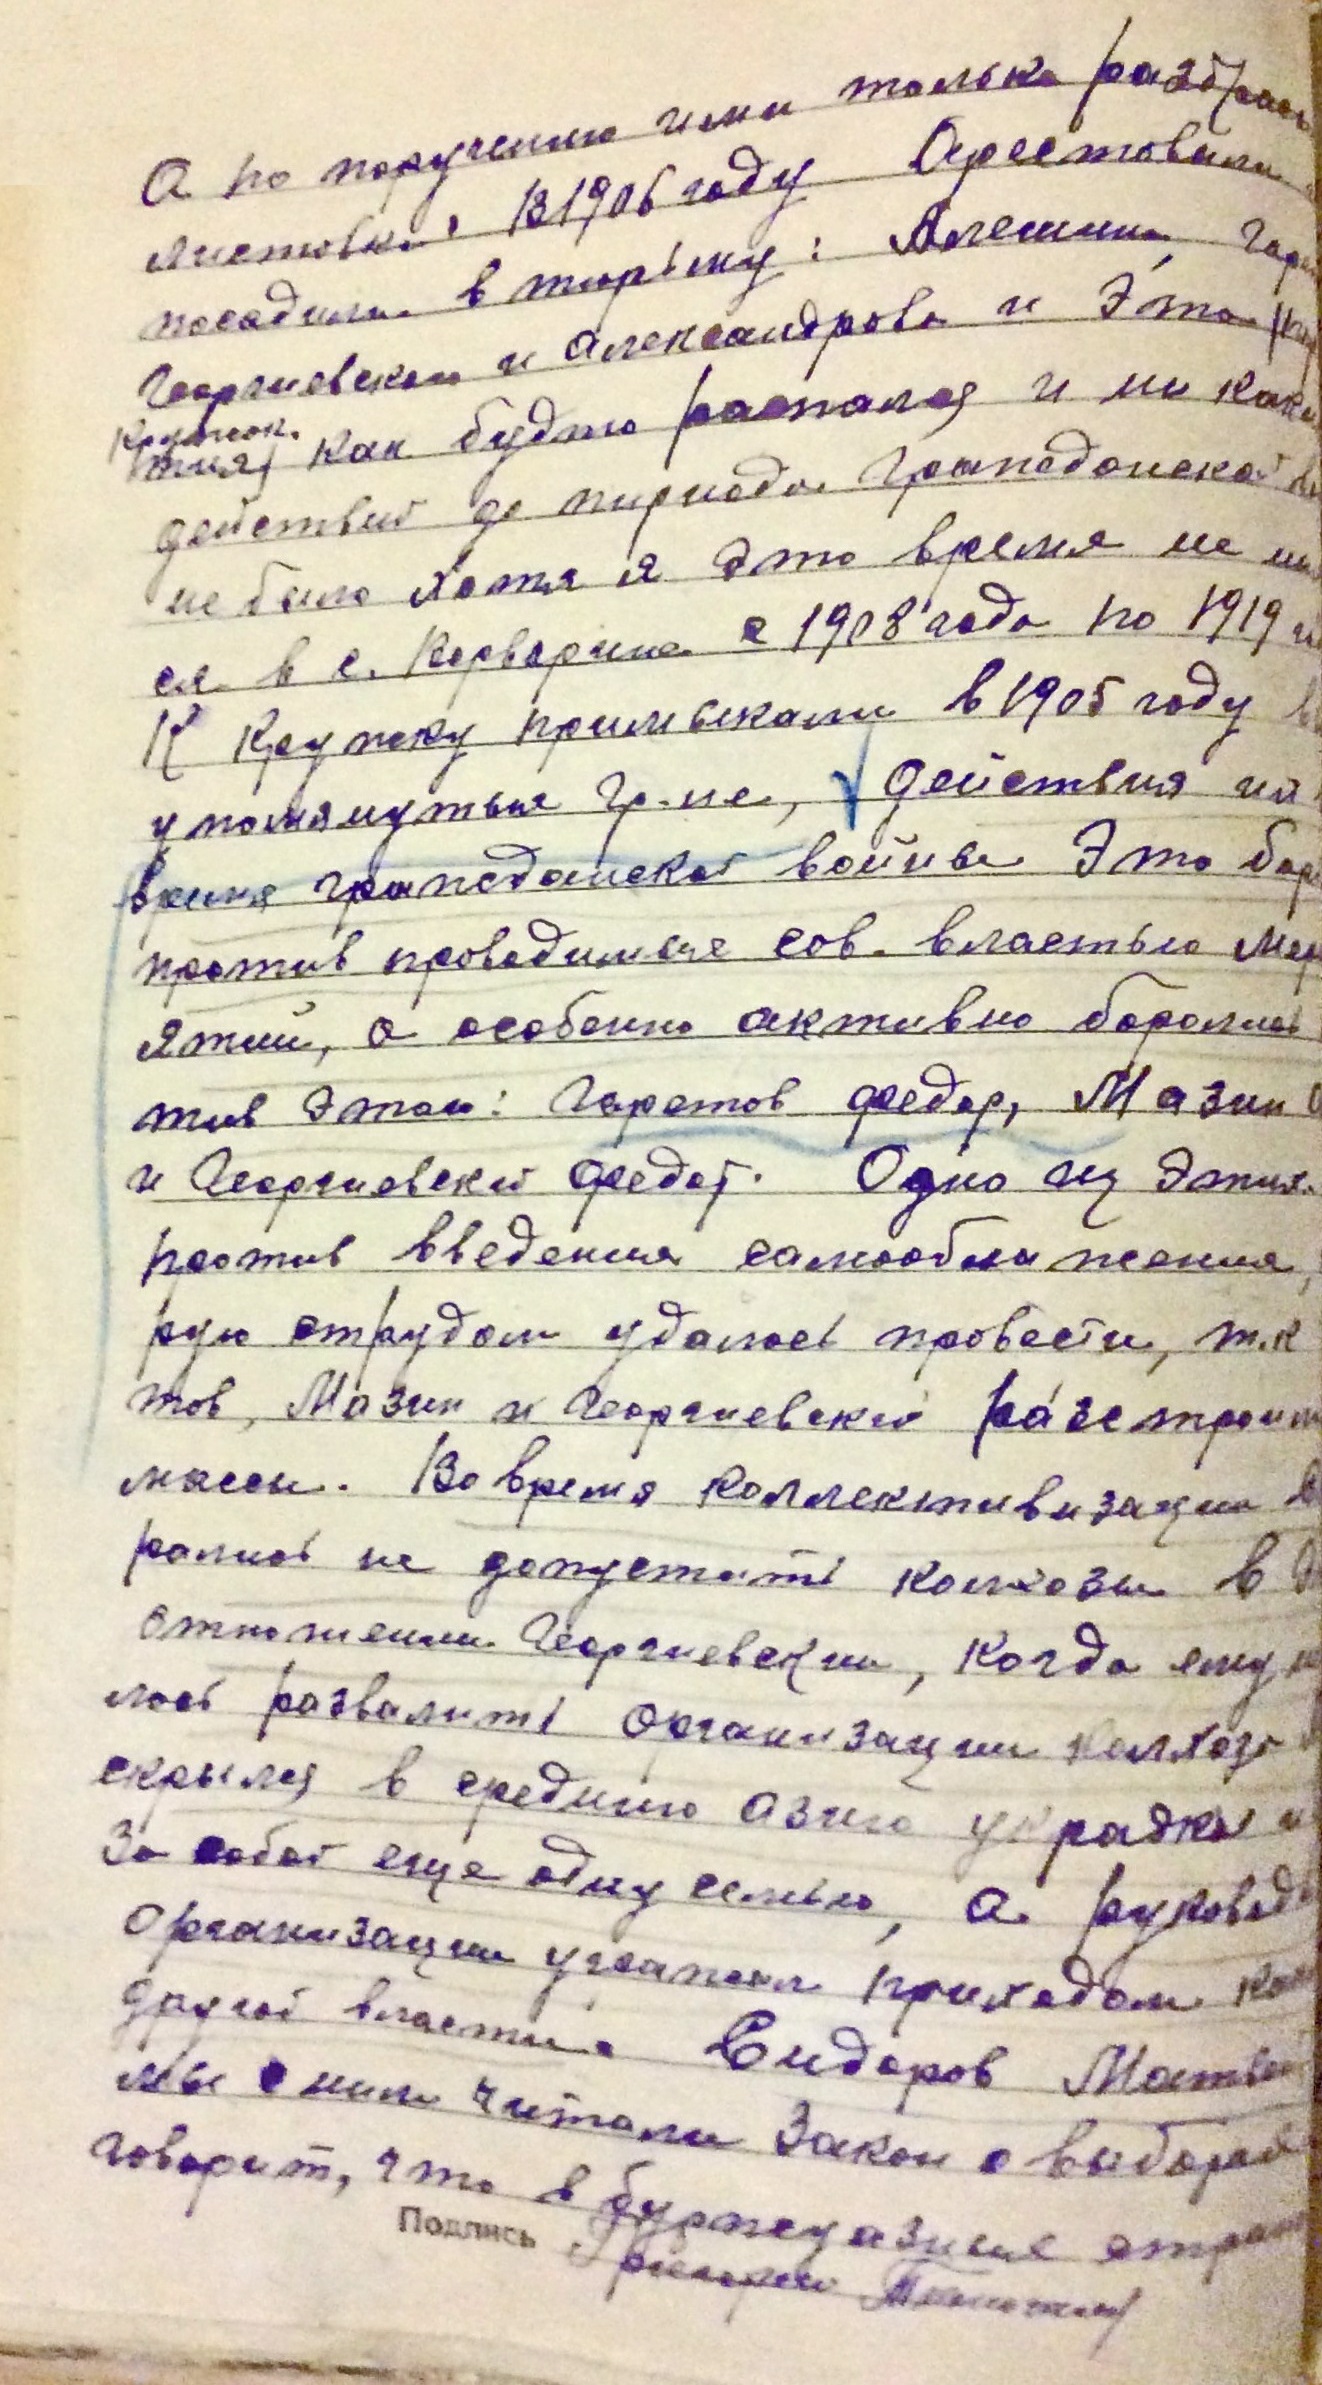 А по поручению ими только разбрась
листовки. В 1906 году Арестовали
посадили в тюрьму: Алешина
Георгиевском и Александрова и Это
Кружок.
тия, как будто распался и ни каки
действий до периода Гражданской
не было Хотя я Это время не
ся в с. с 1908 года по 1919
К Кружку примыкали в 1905 году
упомянутые гр-не, действия их
время гражданской войны Это бор
против проводимые сов. властью мер
ятий, а особенно активно боролись
тив этом: Гаретов Федор, Мазин
и Георгиевский Федот. Одно из этих
против введения самообложения,
рую струдом удалось провести, т.к
тов, Мазин и Георгиевский разстроит
массы. Во время коллективизации
рались не допустить колхозы в
отношении Георгиевским, когда ему
лось развалить организации колхоза
скрылся в среднию азию украдкой
За собой еще одну семью, а руковод
организации угрожал приходом
другой власти. Сидоров Матвей
мы с ним читали Закон о выборах
говорит, что в буржуазные стран
Подпись